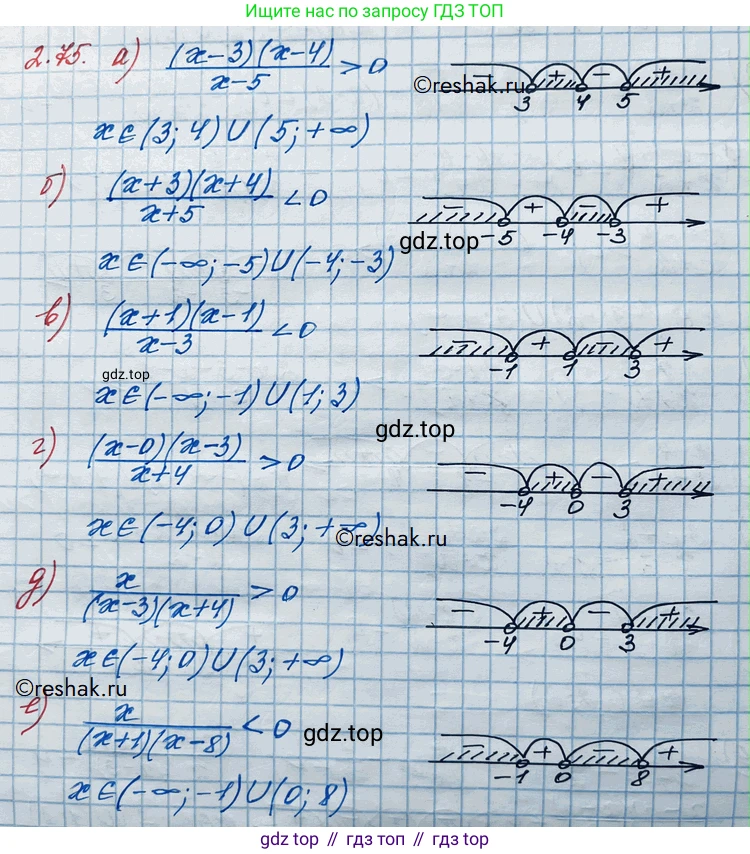 Ищите нас по запросу ГДЗ ТОП
2.75. а) (x-3)(x-4)/(x-5) > 0
- + - +
3 4 5
©reshak.ru
x∈(3; 4)∪(5; +∞)
б) (x+3)(x+4)/(x+5) < 0
- + - +
-5 -4 -3
gdz.top
x∈(-∞; -5)∪(-4; -3)
в) (x+1)(x-1)/(x-3) < 0
- + - +
-1 1 3
gdz.top
x∈(-∞; -1)∪(1; 3)
gdz.top
г) (x-0)(x-3)/(x+4) > 0
- + - +
-4 0 3
x∈(-4; 0)∪(3; +∞)
©reshak.ru
д) x/((x-3)(x+4)) > 0
- + - +
-4 0 3
x∈(-4; 0)∪(3; +∞)
©reshak.ru
е) x/((x+1)(x-8)) < 0
gdz.top
- + - +
-1 0 8
x∈(-∞; -1)∪(0; 8)
gdz top // гдз топ // gdz.top